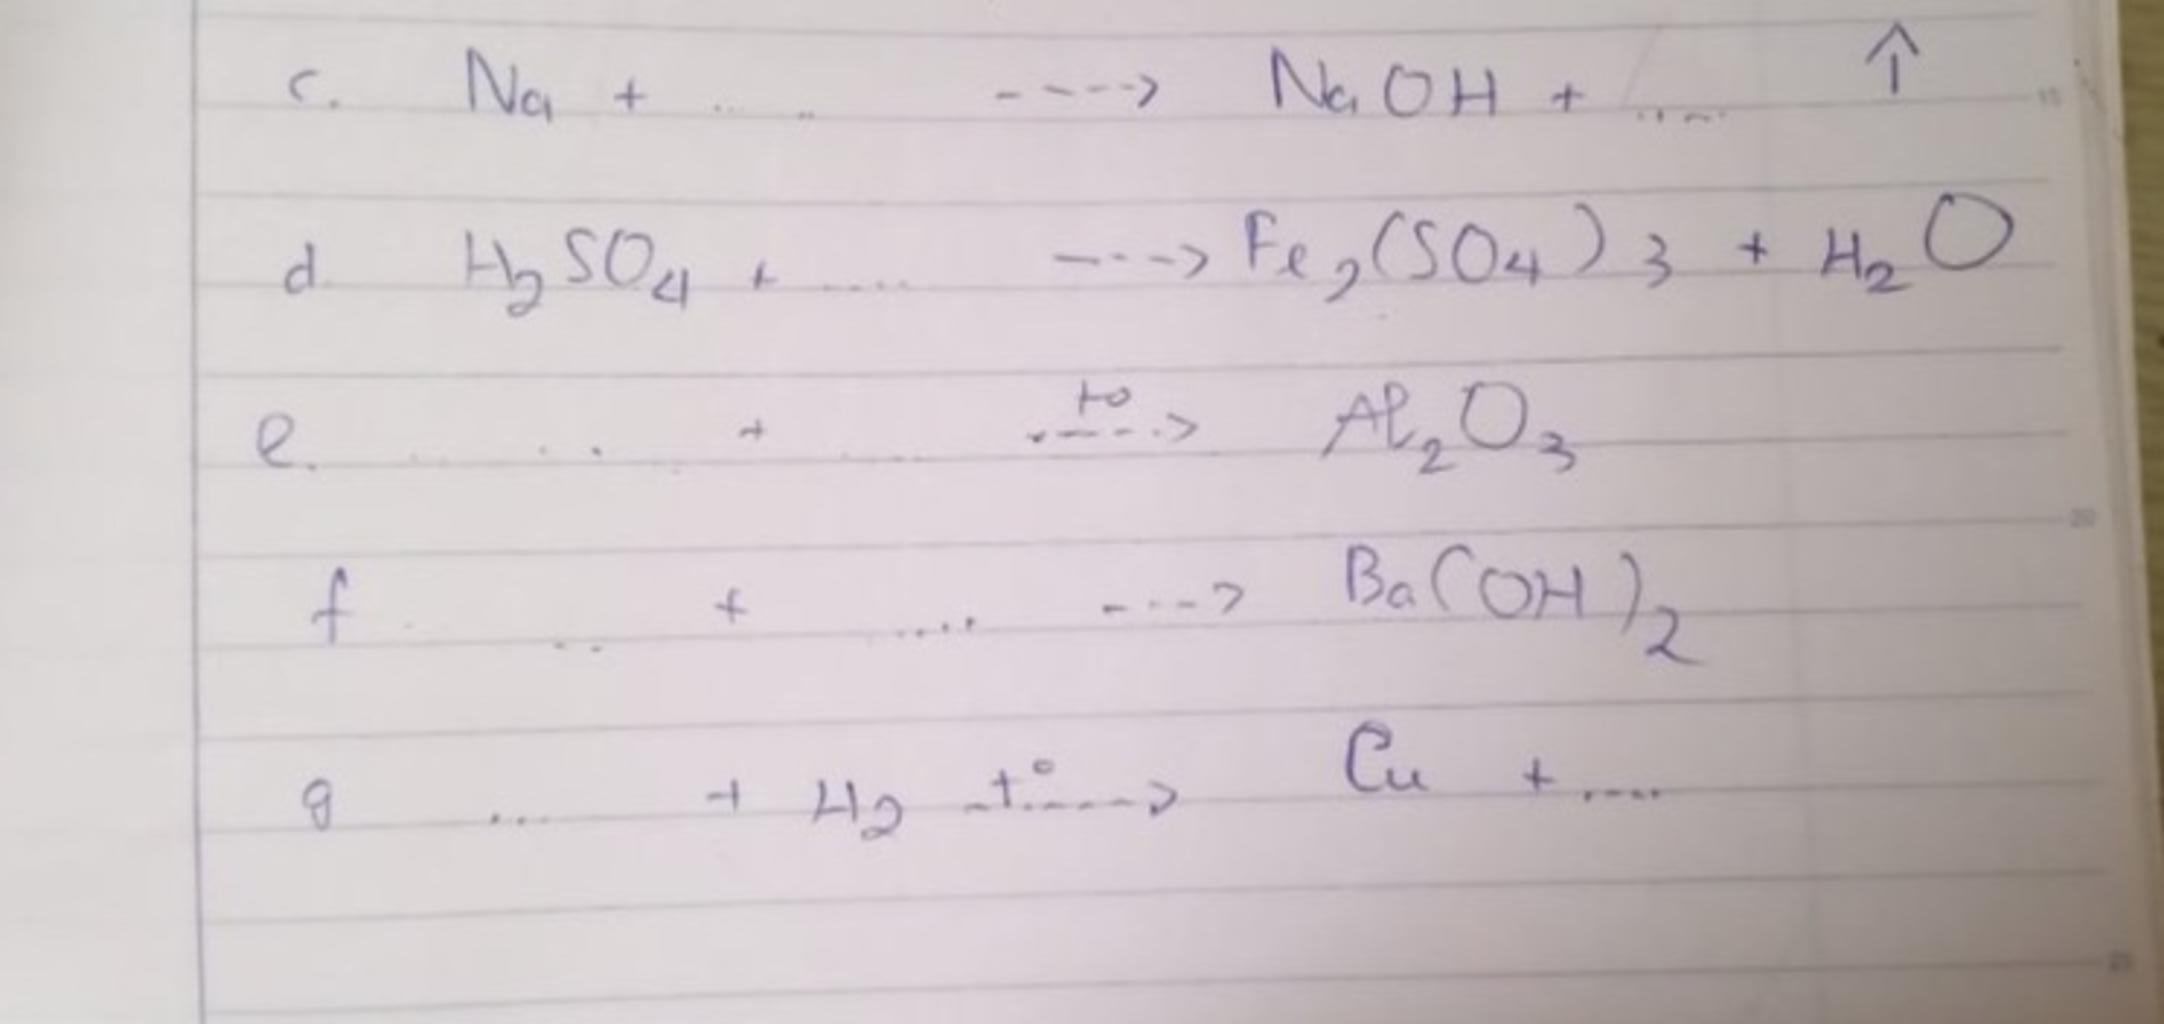 c. Na + ...... ----> NaOH + ..... ↑
d H₂SO₄ + ..... ----> Fe₂(SO₄)₃ + H₂O
e. ...... + ..... t⁰ ----> Al₂O₃
f ..... + ..... ----> Ba(OH)₂
g .... + H₂ t° ----> Cu + .....